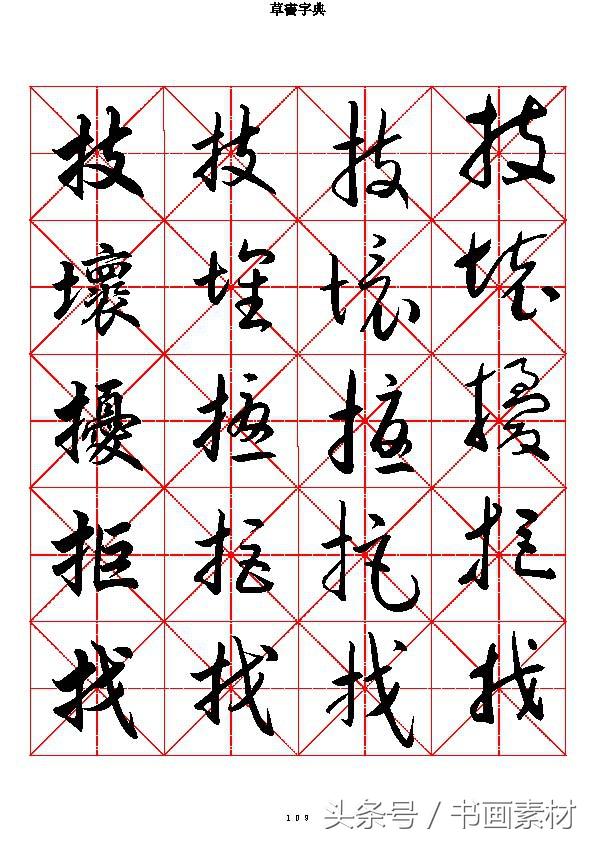 草書字典
技 技 技 技
壞 壞 壞 壞
擾 擾 擾 擾
拒 拒 拒 拒
找 找 找 找
109
头条号 / 书画素材